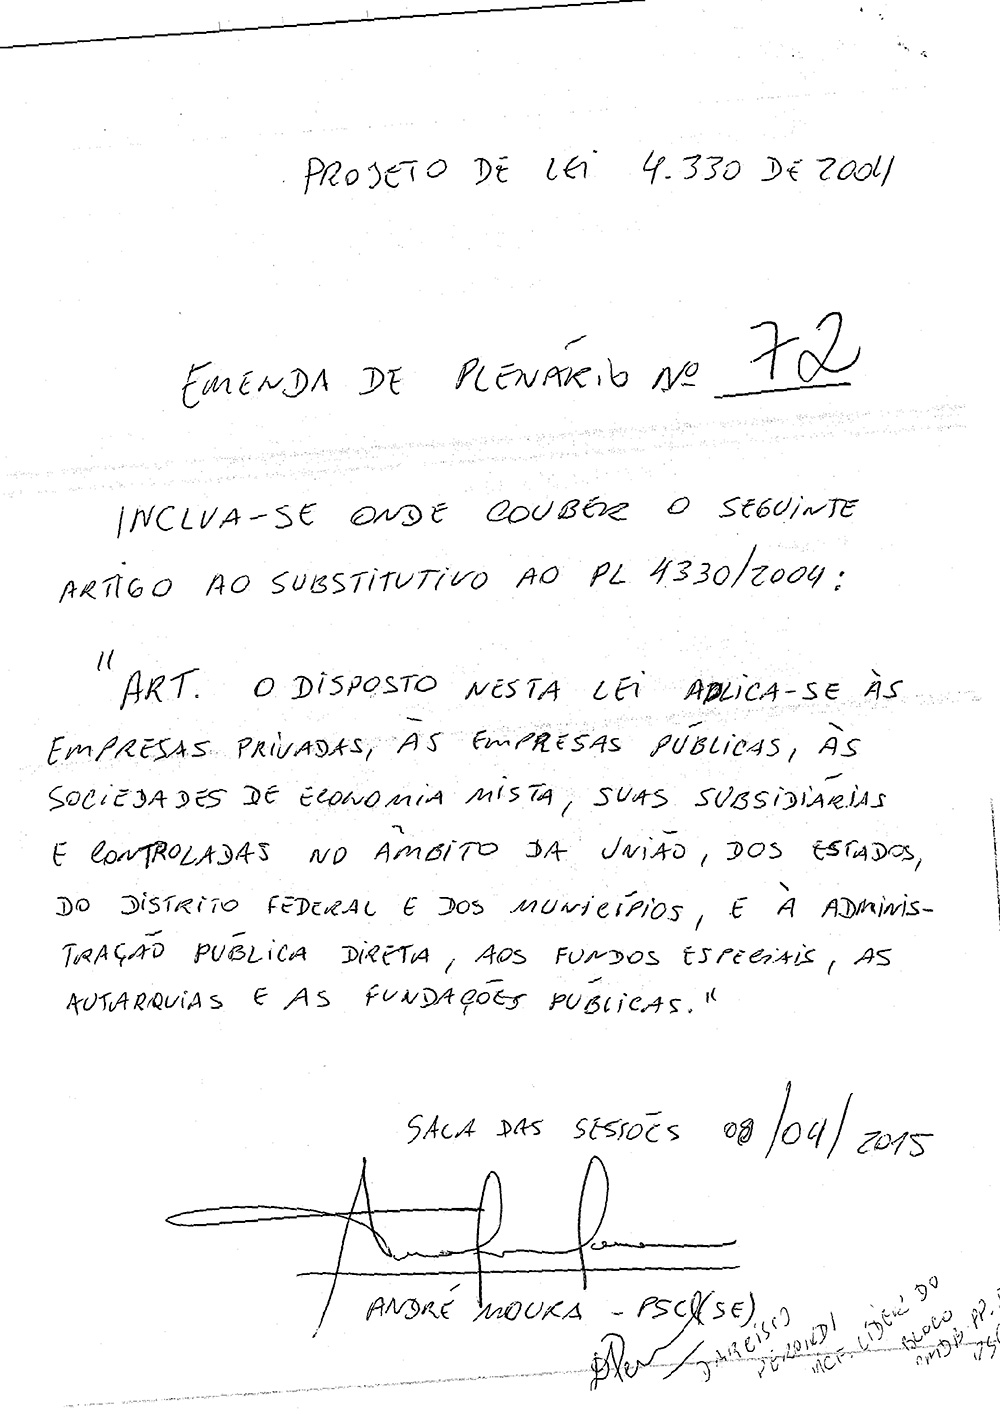 PROJETO DE LEI 4.330 DE 2004
EMENDA DE PLENÁRIO Nº 72
INCLUA-SE ONDE COUBER O SEGUINTE
ARTIGO AO SUBSTITUTIVO AO PL 4330/2004:
"ART. O DISPOSTO NESTA LEI APLICA-SE ÀS
EMPRESAS PRIVADAS, ÀS EMPRESAS PÚBLICAS, ÀS
SOCIEDADES DE ECONOMIA MISTA, SUAS SUBSIDIÁRIAS
E CONTROLADAS NO ÂMBITO DA UNIÃO, DOS ESTADOS,
DO DISTRITO FEDERAL E DOS MUNICÍPIOS, E À ADMINIS-
TRAÇÃO PÚBLICA DIRETA, AOS FUNDOS ESPECIAIS, AS
AUTARQUIAS E AS FUNDAÇÕES PÚBLICAS."
SALA DAS SESSÕES 08/04/2015
ANDRÉ MOURA - PSC(SE)
DARCÍSIO
PERONDI
VICE-LÍDER DO
BLOCO
PMDB PP.